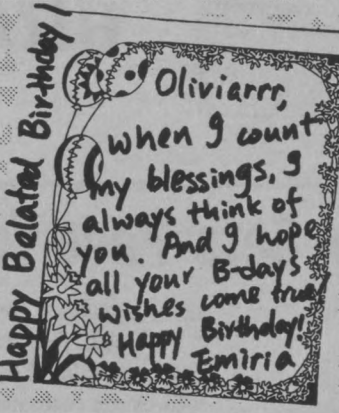 Happy Belated Birthday!
Oliviarrr,
when I count
my blessings, I
always think of
you. And I hope
all your B-days
wishes come true,
Happy Birthday!
Emiria